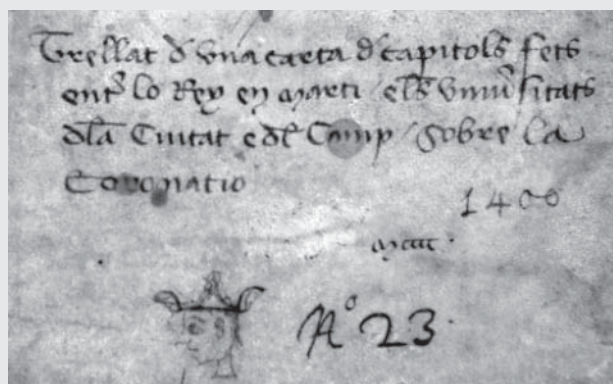 Trellat d una carta d capitols fets
ent' lo Rey en marti / els Univ'sitats
dla Ciutat e dl Camp / sobre la
Coronatio
1400
Nº 23